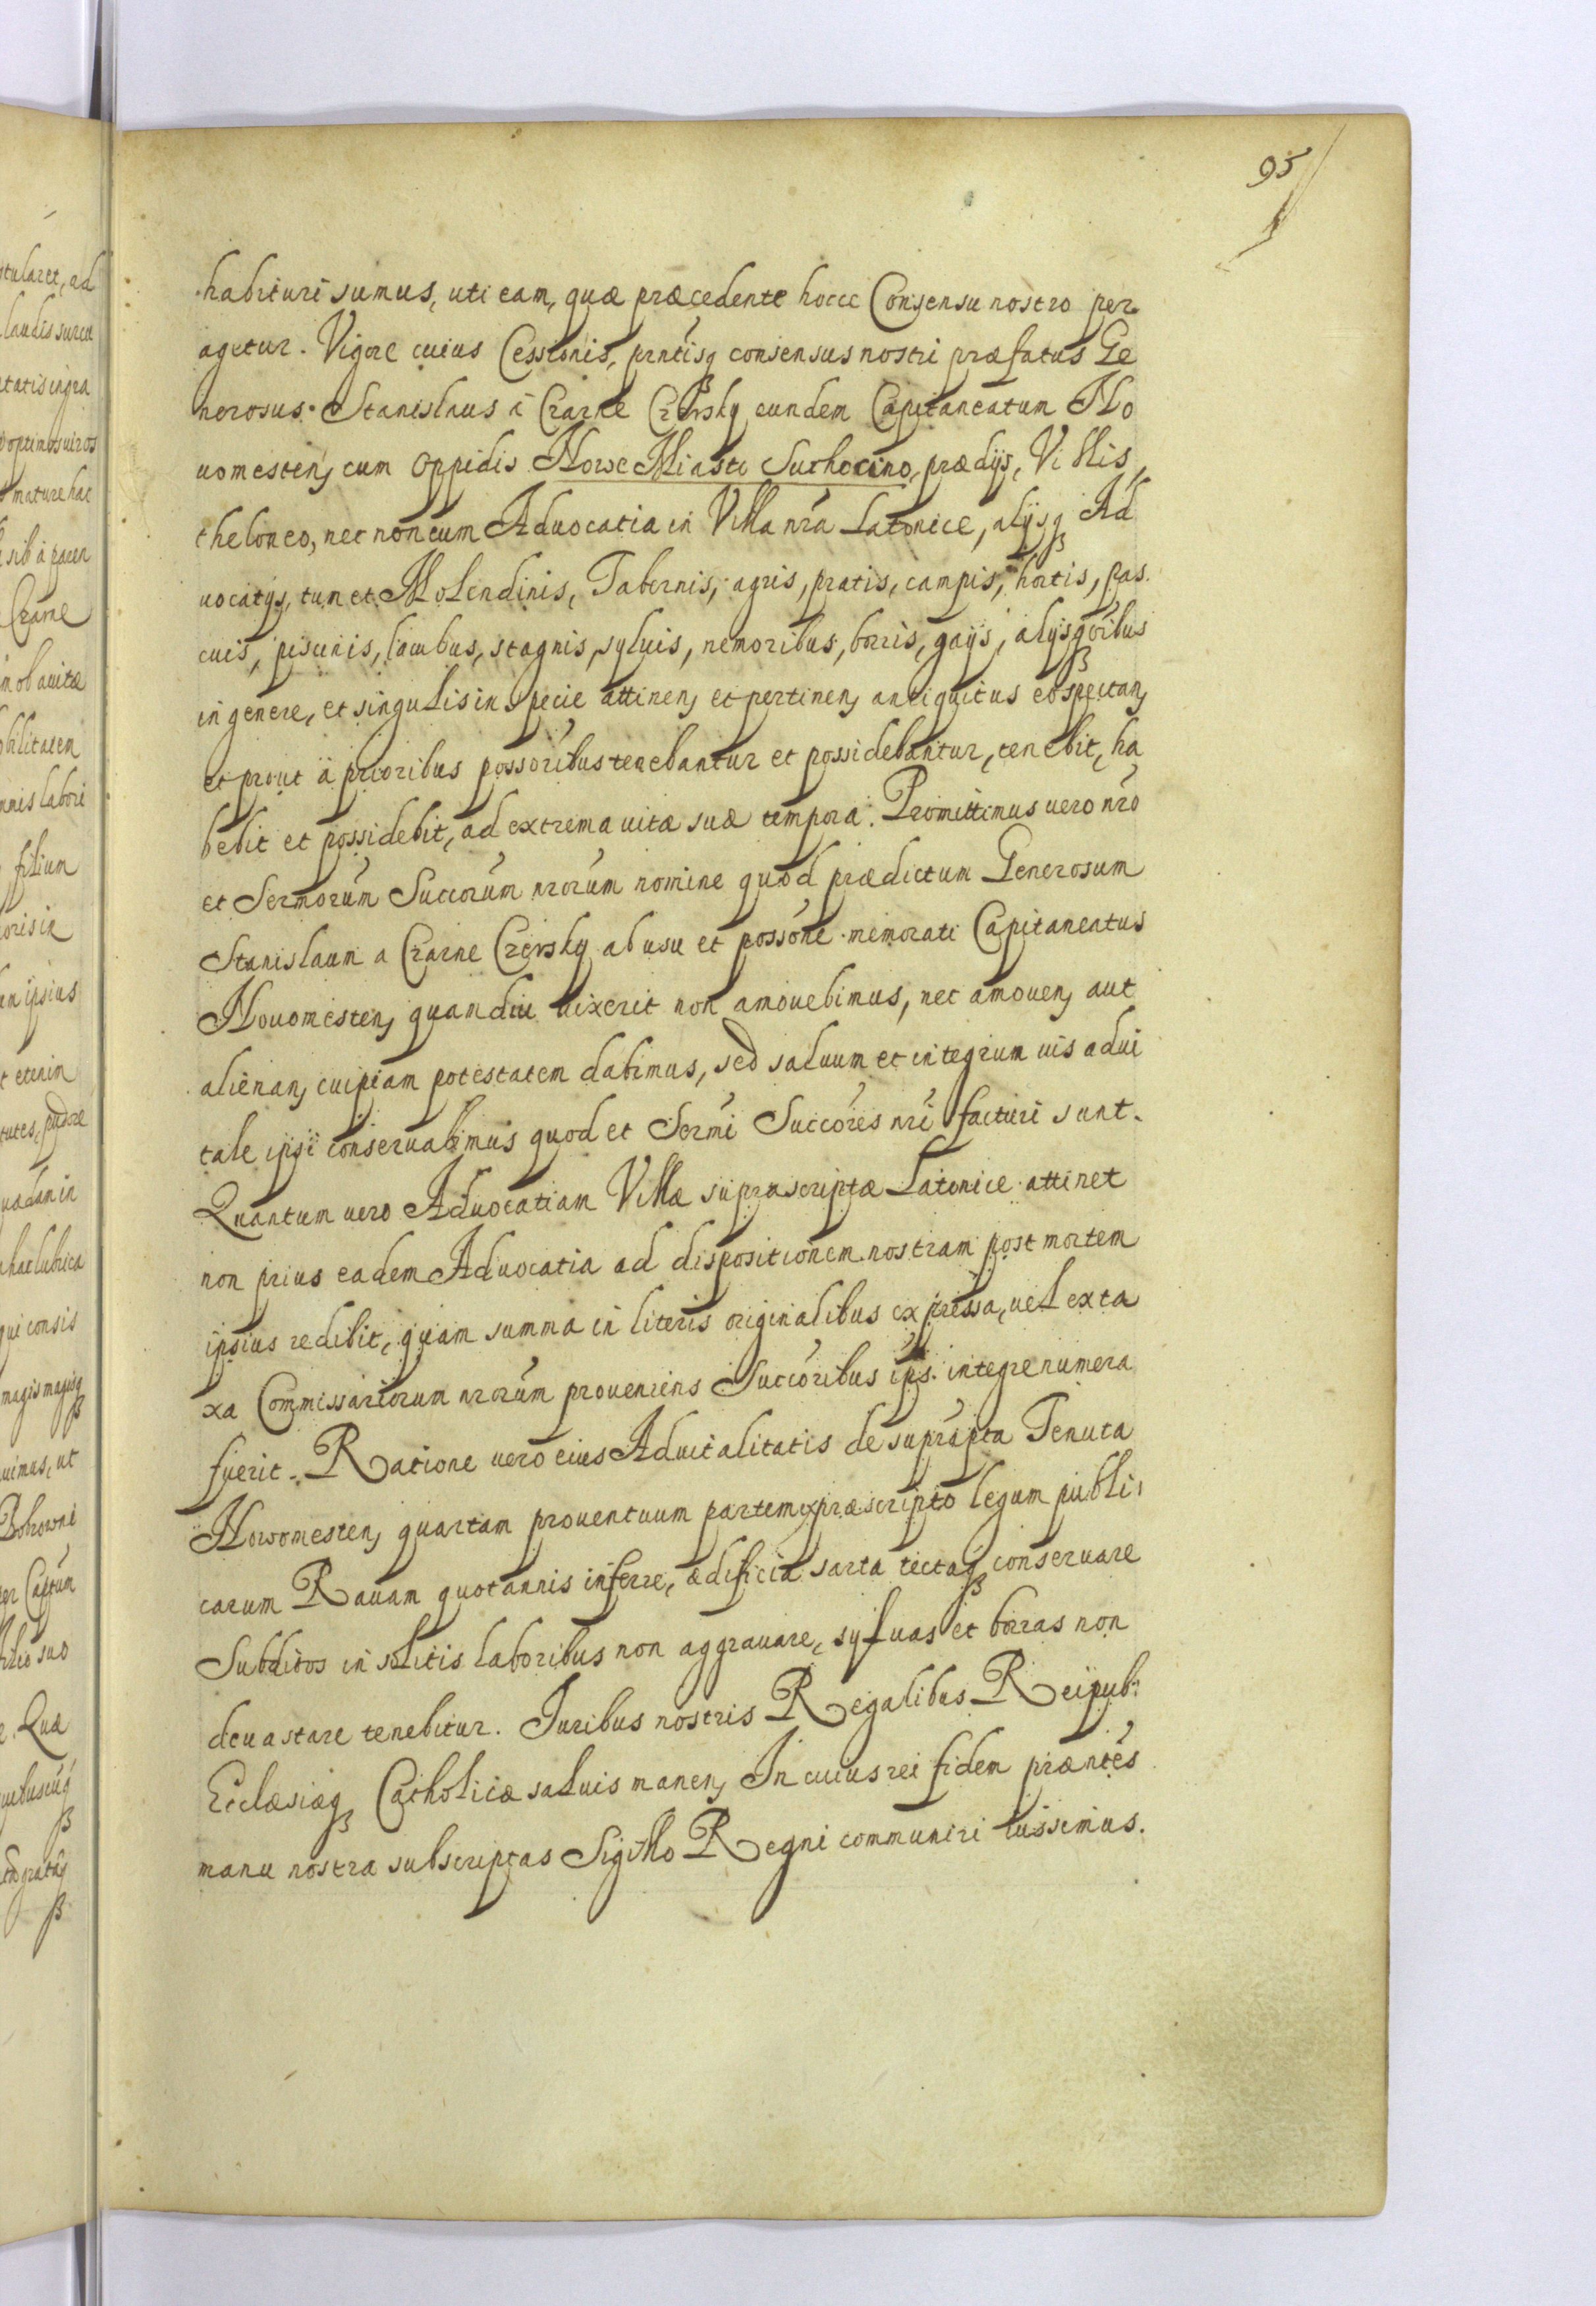 95
habituri sumus, uti eam, quæ præcedente hocce Consensu nostro per
agetur. Vigore cuius Cessionis, prntisq consensus nostri præfatus Ge
nerosus Stanislaus à Czarne Czersky eundem Capitaneatum No
uomesten, cum oppidis Nowe Miasto Suchocino, prædijs, Villis,
theloneo, nec non cum Aduocatia in Villa nrã Latonice, alijsq Ad
uocatijs, tum et Molendinis, Tabernis, agris, pratis, campis, hortis, pas
cuis, piscinis, lacubus, stagnis, syluis, nemoribus, borris, gaijs, alijsq oibus
in genere, et singulis in specie attinen, et pertinen, antiquitus eo spectan,
et prout à prioribus possoribus tenebantur et possidebantur, tenebit, ha
bebit et possidebit, ad extrema uitæ suæ tempora. Promittimus uero nrõ
et Sermorum Succorum nrorum nomine quod prædictum Generosum
Stanislaum a Czarne Czersky ab usu et possone memorati Capitaneatus
Nouomesten, quamdiu uixerit non amouebimus, nec amouen, aut
alienan, cuipiam potestatem dabimus, sed saluum et integrum ius adui
tale ipsi conseruabimus quod et Sermi Succores nri facturi sunt.
Quantum uero Aduocatiam Villæ suprascriptæ Latonice attinet
non prius eadem Aduocatia ad dispositionem nostram post mortem
ipsius redibit, quam summa in literis originalibus expressa, uel ex ta
xa Commissariorum nrorum proueniens Succoribus ips. integre numera
fuerit. Ratione uero eius Aduitalitatis de suprapta Tenuta
Nowomesten, quartam prouentuum partem ex præscripto legum publi
carum Rauam quotannis inferre, ædificia sarta tectaq conseruare
Subditos insolitis laboribus non aggrauare, syluas et borras non
deuastare tenebitur. Iuribus nostris Regalibus Reipub:
Ecclæsiæq Catholicæ saluis manen, In cuius rei fidem præntes
manu nostra subscriptas Sigillo Regni communiri iussimus.